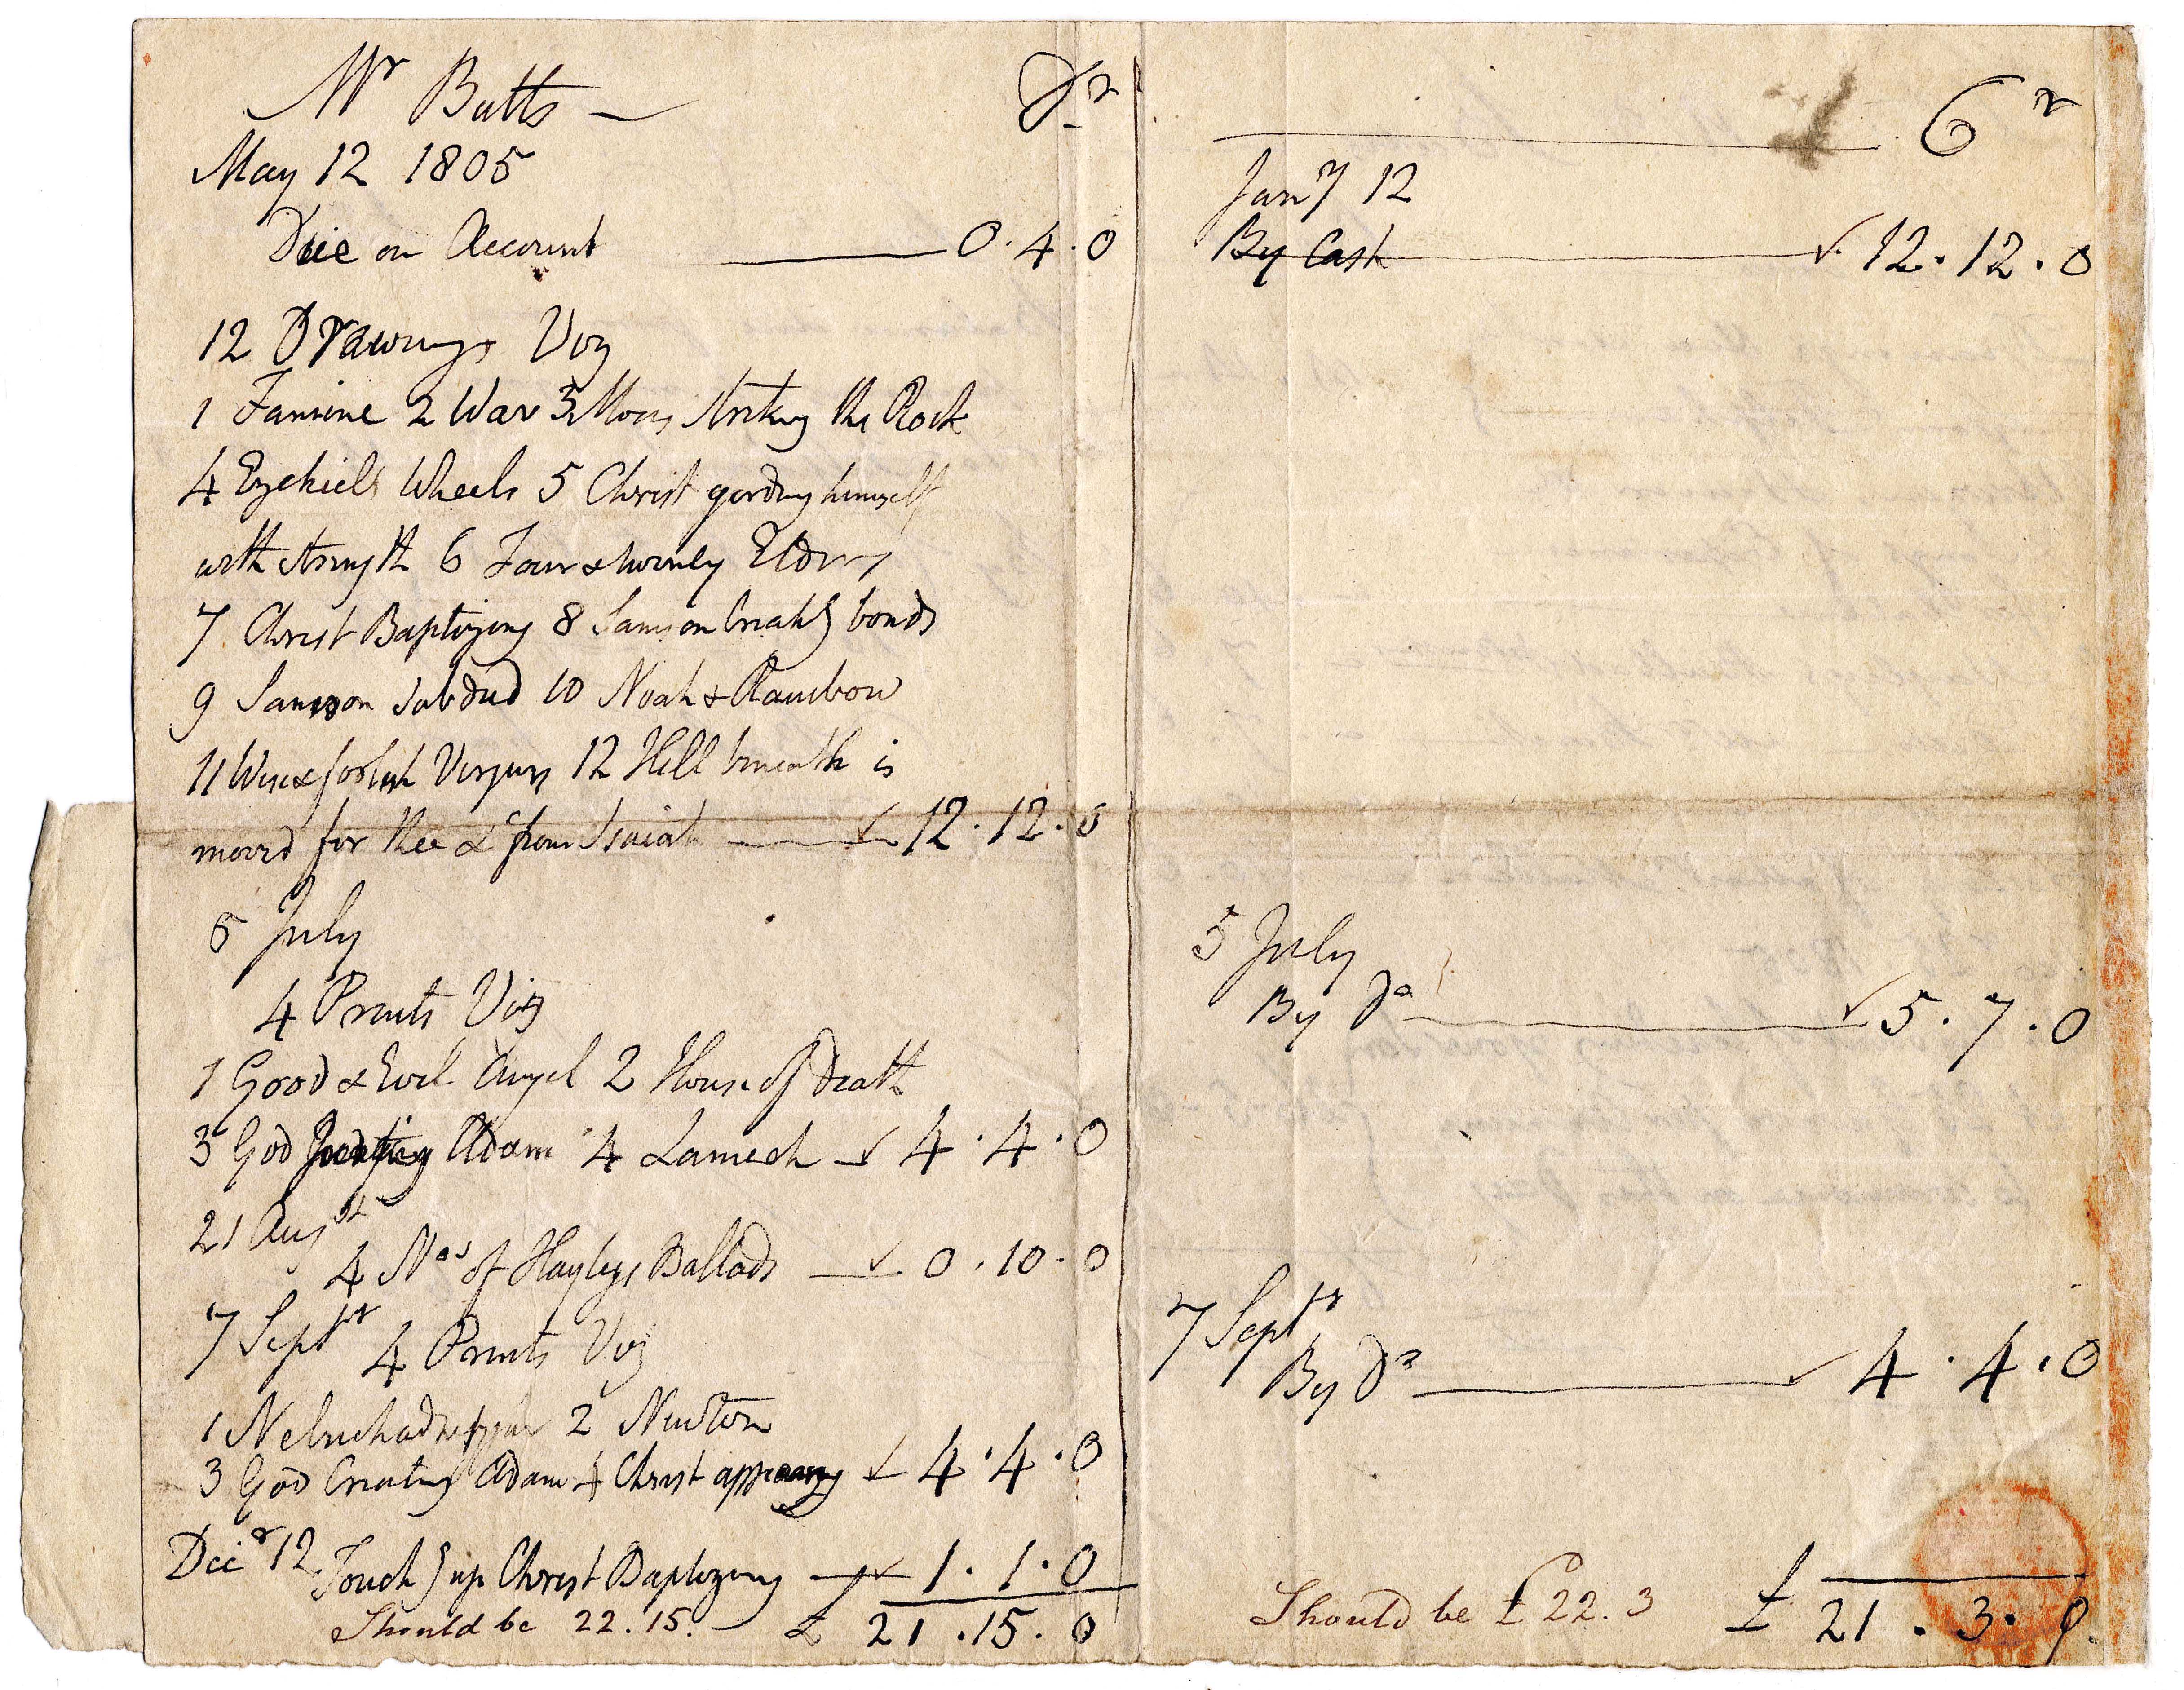 Mr Butts — Dr
May 12 1805
Due on Account 0.4.0
12 Drawings Viz
1 Famine 2 War 3 Moses striking the Rock
4 Ezekiels Wheels 5 Christ girding himself
with strength 6 Four & twenty Elders
7 Christ Baptizing 8 Samson breakg bonds
9 Samson subdued 10 Noah & Rainbow
11 Wise & foolish Virgins 12 Hell beneath is
moved for thee &c from Isaiah — 12.12.0
5 July
4 Prints Viz
1 Good & Evil Angel 2 House of Death
3 God Judging Adam 4 Lamech — 4.4.0
21 Augst
4 Nos of Hayleys Ballads — 0.10.0
7 Septr 4 Prints Viz
1 Nebuchadnezzar 2 Newton
3 God Creating Adam 4 Christ appearing 4.4.0
Decr 12 Touchg up Christ Baptizing — 1.1.0
Should be 22.15. — £ 21.15.0
Cr
Jany 12
By Cash 12.12.0
5 July
By Do 5.7.0
7 Septr
By Do 4.4.0
Should be £22.3 £ 21.3.0